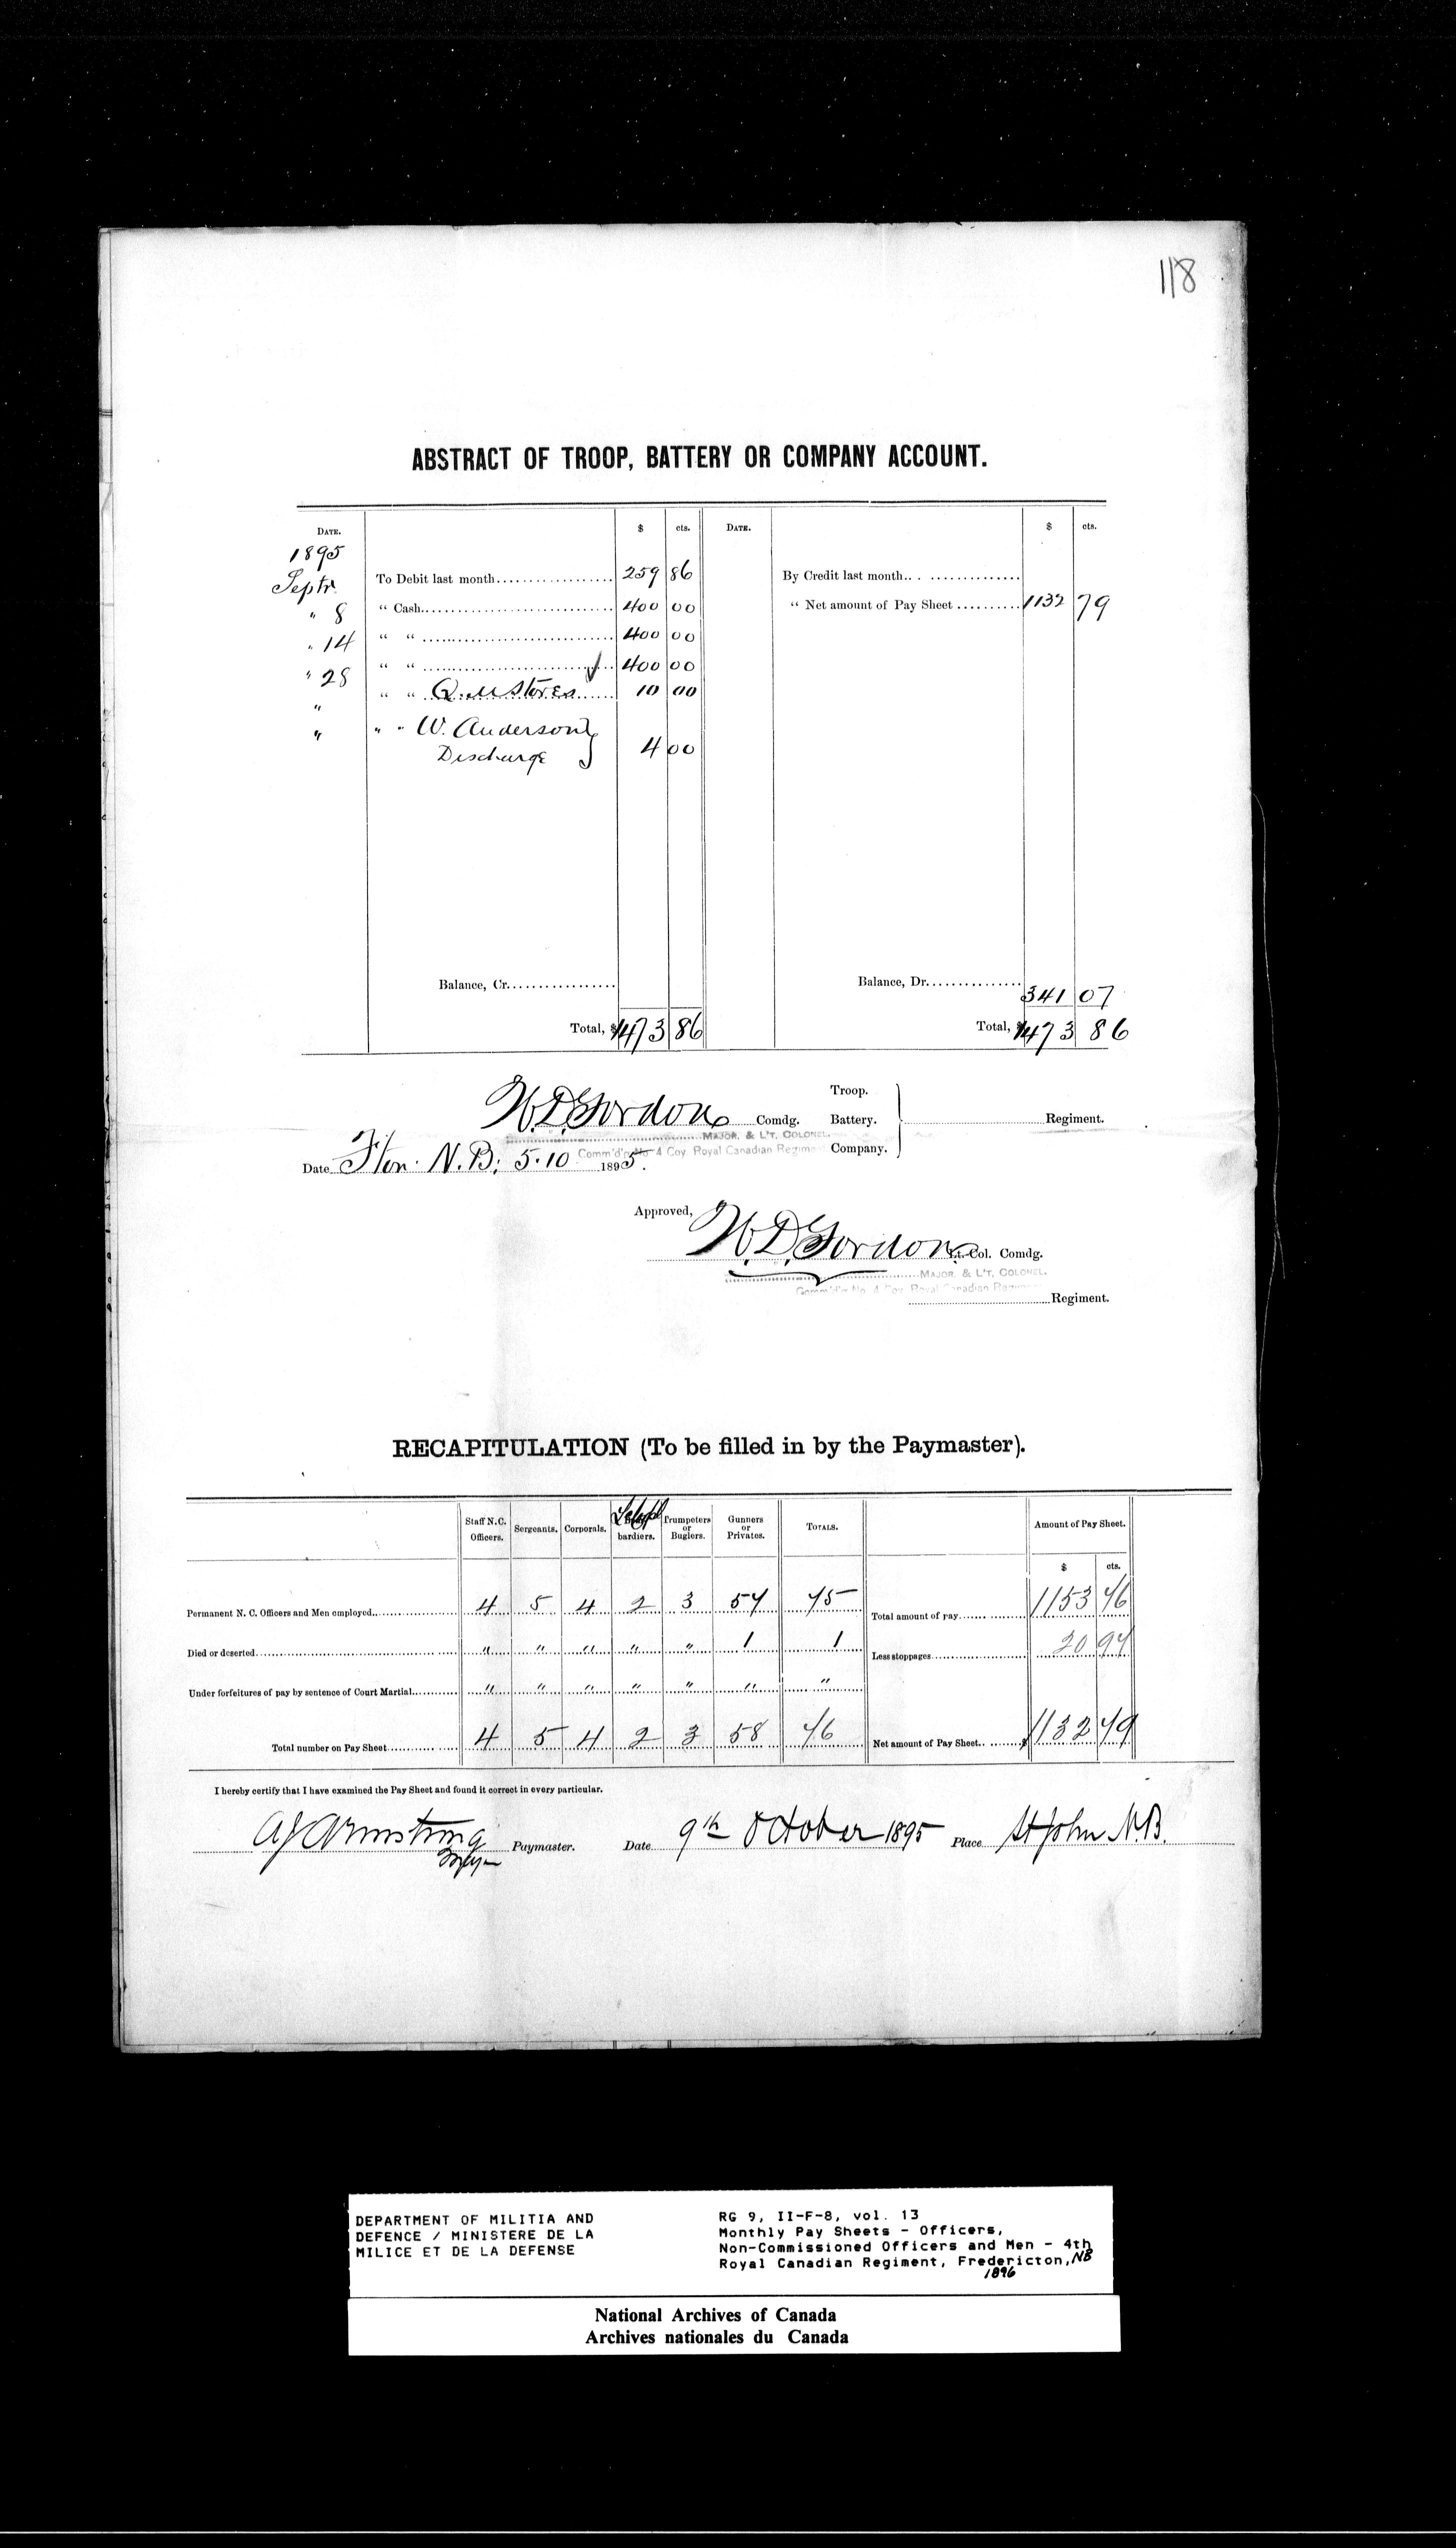 118
ABSTRACT OF TROOP, BATTERY OR COMPANY ACCOUNT.
DATE. $ cts. DATE. $ cts.
1895
Septr. To Debit last month 259 86 By Credit last month
" 8 " Cash 400 00 " Net amount of Pay Sheet 1132 79
" 14 " " 400 00
" 28 " " 400 00
" " " Q.M Stores 10 00
" " " W. Anderson }
Discharge } 4 00
Balance, Cr. Balance, Dr. 341 07
Total, $1473 86 Total, $1473 86
W.D. Gordon Comdg. Troop. Battery. Company. } Regiment.
MAJOR. & L'T. COLONEL.
Comm'd'g No 4 Coy. Royal Canadian Regiment
Date F'ton. N.B; 5.10 1895.
Approved,
W.D. Gordon Lt.-Col. Comdg.
MAJOR. & L'T. COLONEL.
Comm'd'g No. 4 Coy. Royal Canadian Regiment
Regiment.
RECAPITULATION (To be filled in by the Paymaster).
Staff N.C. Officers. Sergeants. Corporals. bardiers. Trumpeters or Buglers. Gunners or Privates. TOTALS. Amount of Pay Sheet.
$ cts.
Permanent N. C. Officers and Men employed 4 5 4 2 3 57 75 Total amount of pay 1153 76
Died or deserted " " " " " 1 1 Less stoppages 20 97
Under forfeitures of pay by sentence of Court Martial " " " " " " "
Total number on Pay Sheet 4 5 4 2 3 58 76 Net amount of Pay Sheet $1132 79
I hereby certify that I have examined the Pay Sheet and found it correct in every particular.
AJ Armstrong Paymaster. Date 9th October 1895 Place St John N.B.
Major
DEPARTMENT OF MILITIA AND
DEFENCE / MINISTERE DE LA
MILICE ET DE LA DEFENSE
RG 9, II-F-8, vol. 13
Monthly Pay Sheets - Officers,
Non-Commissioned Officers and Men - 4th
Royal Canadian Regiment, Fredericton, NB
1896
National Archives of Canada
Archives nationales du Canada